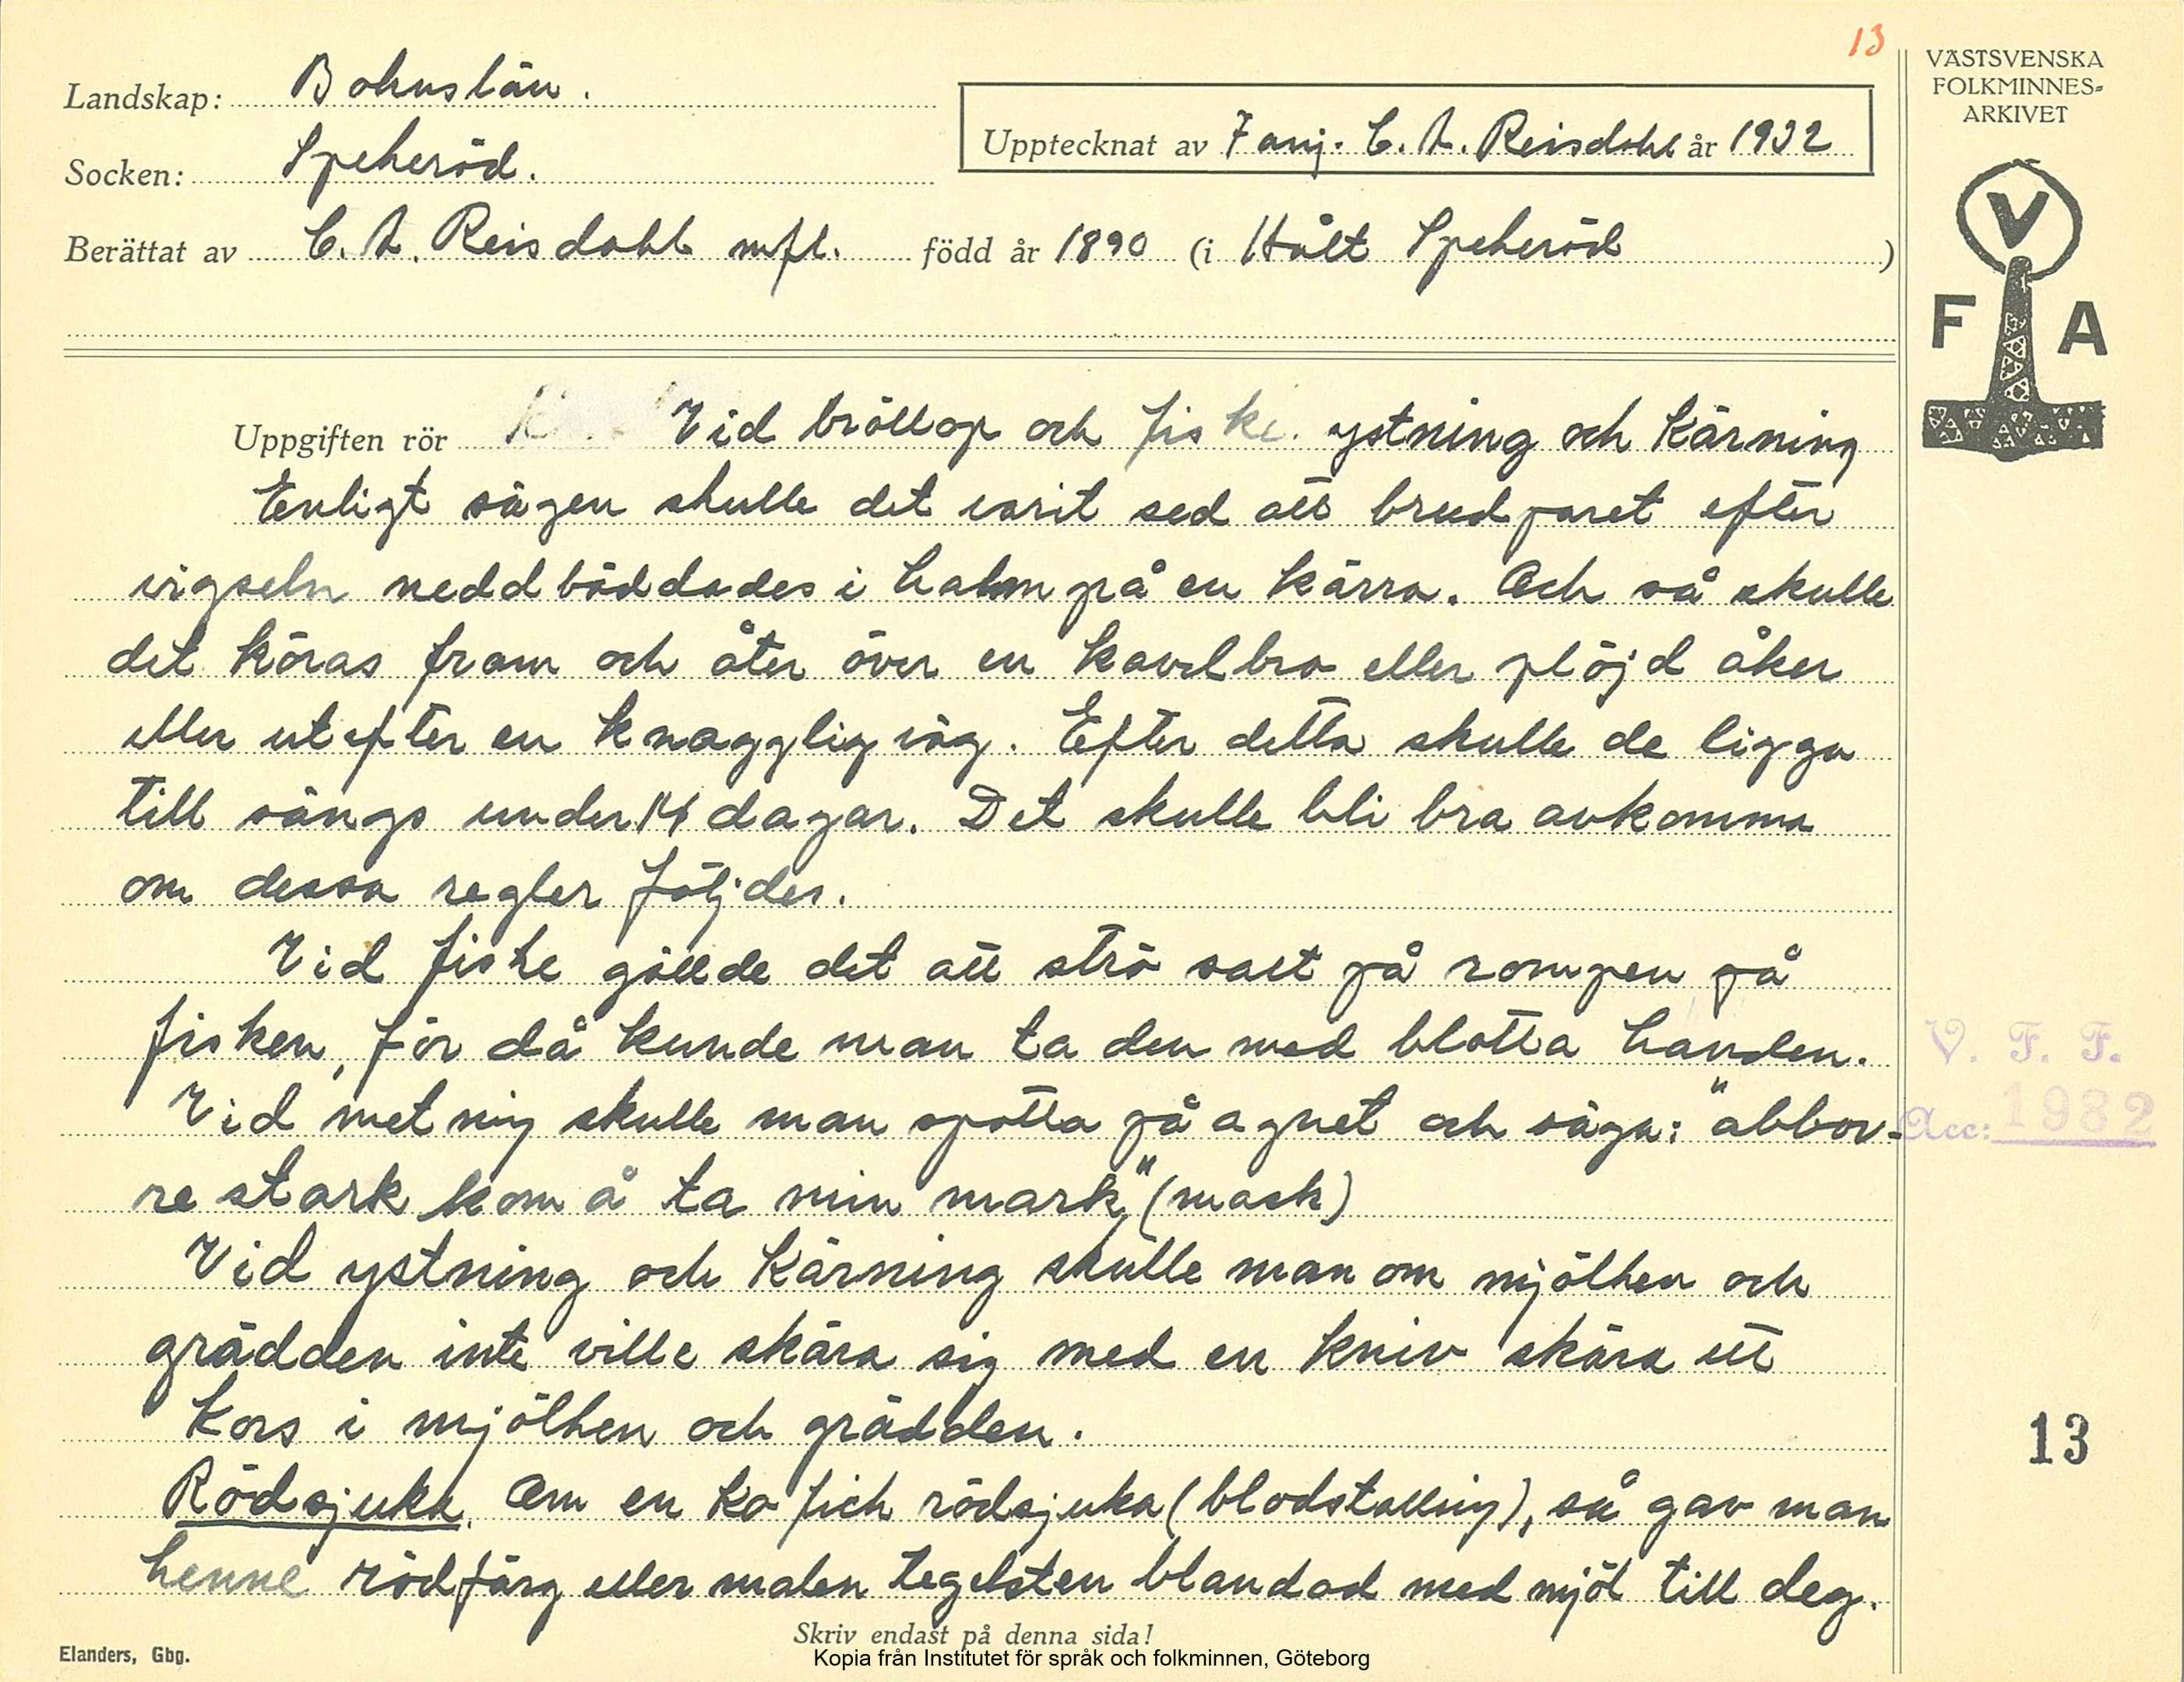 13
Landskap: Bohuslän.
Socken: Spekeröd.
Upptecknat av Fanj. C. A. Reisdahl år 1932
Berättat av C. A. Reisdahl m fl. född år 1890 (i Hålt Spekeröd)
VÄSTSVENSKA
FOLKMINNES-
ARKIVET
V
F A
Uppgiften rör Vid bröllop och fiske. ystning och Kärning
Enligt sägen skulle det varit sed att brudparet efter
vigseln neddbäddades i halm på en kärra. Och så skulle
det köras fram och åter över en kavelbro eller plöjd åker
eller utefter en knagglig väg. Efter detta skulle de ligga
till sängs under 14 dagar. Det skulle bli bra avkomma
om dessa regler följdes.
Vid fiske gällde det att strö salt på rompen på
fisken, för då kunde man ta den med blotta handen.
Vid metning skulle man spotta på agnet och säga: "abbor-
re stark kom å ta min mark" (mask)
Vid ystning och Kärning skulle man om mjölken och
grädden inte ville skära sig med en kniv skära ett
kors i mjölken och grädden.
Rödsjuka. Om en ko fick rödsjuka (blodstallning), så gav man
henne rödfärg eller malen tegelsten blandad med mjöl till deg.
V. F. F.
Acc: 1982
13
Skriv endast på denna sida!
Elanders, Gbg.
Kopia från Institutet för språk och folkminnen, Göteborg